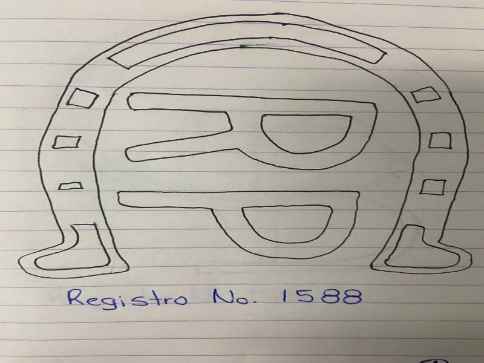 R
P
Registro No. 1588